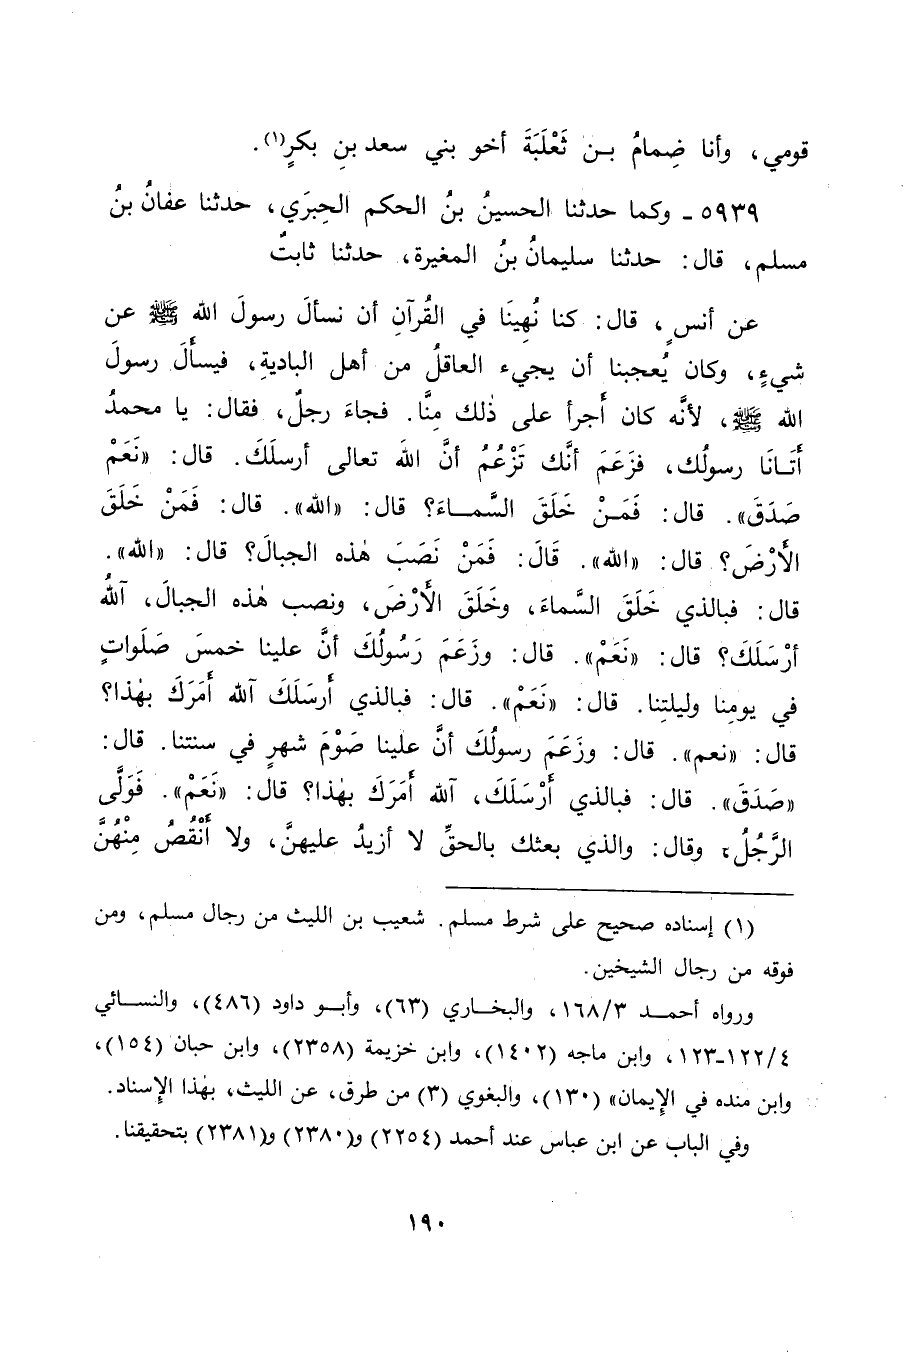 قومي، وأنا ضِمامُ بن ثَعْلَبَةَ أخو بني سعد بنِ بكرٍ(١).
٥٩٣٩ ـ وكما حدثنا الحسينُ بنُ الحكم الحِبرَي، حدثنا عفانُ بنُ
مسلم، قال: حدثنا سليمانُ بنُ المغيرة، حدثنا ثابتٌ
عن أنسٍ، قال: كنا نُهِينَا في القُرآنِ أن نسألَ رسولَ الله ﷺ عن
شيءٍ، وكان يُعجبنا أن يجيء العاقلُ من أهل الباديةِ، فيسأَلَ رسولَ
الله ﷺ، لأنَّه كان أَجرأ على ذٰلك مِنَّا. فجاءَ رجلٌ، فقال: يا محمدُ
أَتَـانَا رسولُك، فزَعَمَ أنَّك تَزْعُمُ أنَّ اللهَ تعالى أرسلَكَ. قال: «نَعَمْ
صَدَقَ». قال: فَمَـنْ خَلَقَ السَّمـاءَ؟ قال: «الله». قال: فَمَنْ خَلَقَ
الأَرْضَ؟ قال: «الله». قَالَ: فَمَنْ نَصَبَ هٰذه الجبالَ؟ قال: «الله».
قال: فبالذي خَلَقَ السَّماءَ، وخَلَقَ الأَرْضَ، ونصب هٰذه الجبالَ، آللهُ
أرْسَلَكَ؟ قال: «نَعَمْ». قال: وزَعَمَ رَسُولُكَ أنَّ علينا خمسَ صَلَواتٍ
في يومِنا وليلتِنا. قال: «نَعَمْ». قال: فبالذي أَرسَلَكَ آلله أَمَرَكَ بهٰذا؟
قال: «نعم». قال: وزَعَمَ رسولُكَ أنَّ علينا صَوْمَ شهرٍ في سنتنا. قال:
«صَدَقَ». قال: فبالذي أَرْسَلَكَ، آلله أَمَرَكَ بهٰذا؟ قال: «نَعَمْ». فَوَلَّى
الرَّجُلُ، وقال: والذي بعثك بالحقِّ لا أزيدُ عليهنَّ، ولا أَنْقُصُ مِنْهُنَّ
(١) إسناده صحيح على شرط مسلم. شعيب بن الليث من رجال مسلم، ومن
فوقه من رجال الشيخين.
ورواه أحمـد ١٦٨/٣، والبخـاري (٦٣)، وأبـو داود (٤٨٦)، والنسـائي
١٢٢/٤-١٢٣، وابن ماجه (١٤٠٢)، وابن خزيمة (٢٣٥٨)، وابن حبان (١٥٤)،
وابن منده في الإيمان» (١٣٠)، والبغوي (٣) من طرق، عن الليث، بهٰذا الإسناد.
وفي الباب عن ابن عباس عند أحمد (٢٢٥٤) و(٢٣٨٠) و(٢٣٨١) بتحقيقنا.
١٩٠